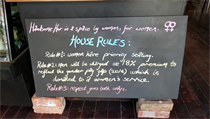 Handsome Her is a space by women, for women.
HOUSE RULES:
Rule #1: women have priority seating.
Rule #2: Men will be charged an 18% premium to
reflect the gender pay gap (2016) which is
donated to a women's service
Rule #3: respect goes both ways.